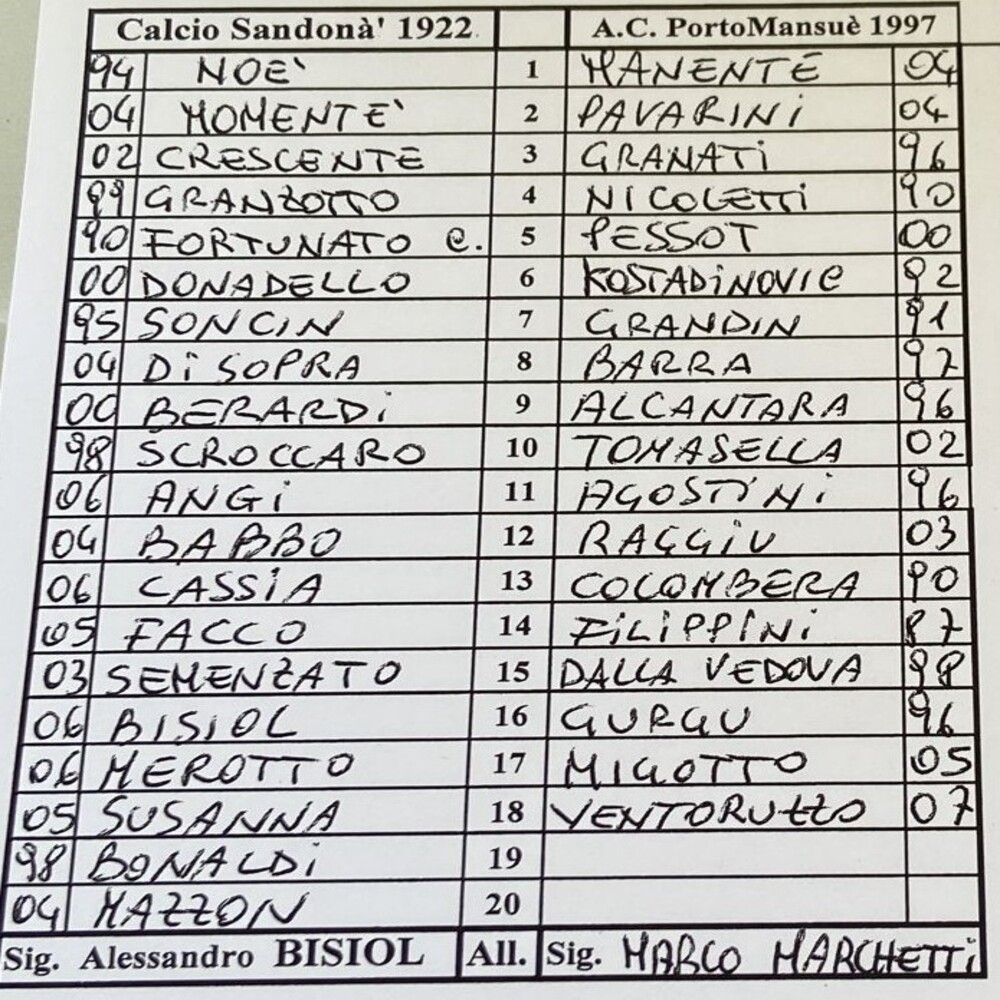 Calcio Sandonà' 1922 A.C. PortoMansuè 1997
94 NOE' 1 MANENTE 04
04 MOMENTE' 2 PAVARINI 04
02 CRESCENTE 3 GRANATI 96
99 GRANZOTTO 4 NICOLETTI 90
90 FORTUNATO C. 5 PESSOT 00
00 DONADELLO 6 KOSTADINOVIC 92
95 SONCIN 7 GRANDIN 91
04 DI SOPRA 8 BARRA 97
00 BERARDI 9 ALCANTARA 96
98 SCROCCARO 10 TOMASELLA 02
06 ANGI 11 AGOSTINI 96
04 BABBO 12 RAGGIU 03
06 CASSIA 13 COLOMBERA 90
05 FACCO 14 FILIPPINI 87
03 SEMENZATO 15 DALLA VEDOVA 98
06 BISIOL 16 GURGU 96
06 MEROTTO 17 MIGOTTO 05
05 SUSANNA 18 VENTORUZZO 07
98 BONALDI 19
04 MAZZON 20
Sig. Alessandro BISIOL All. Sig. MARCO MARCHETTI